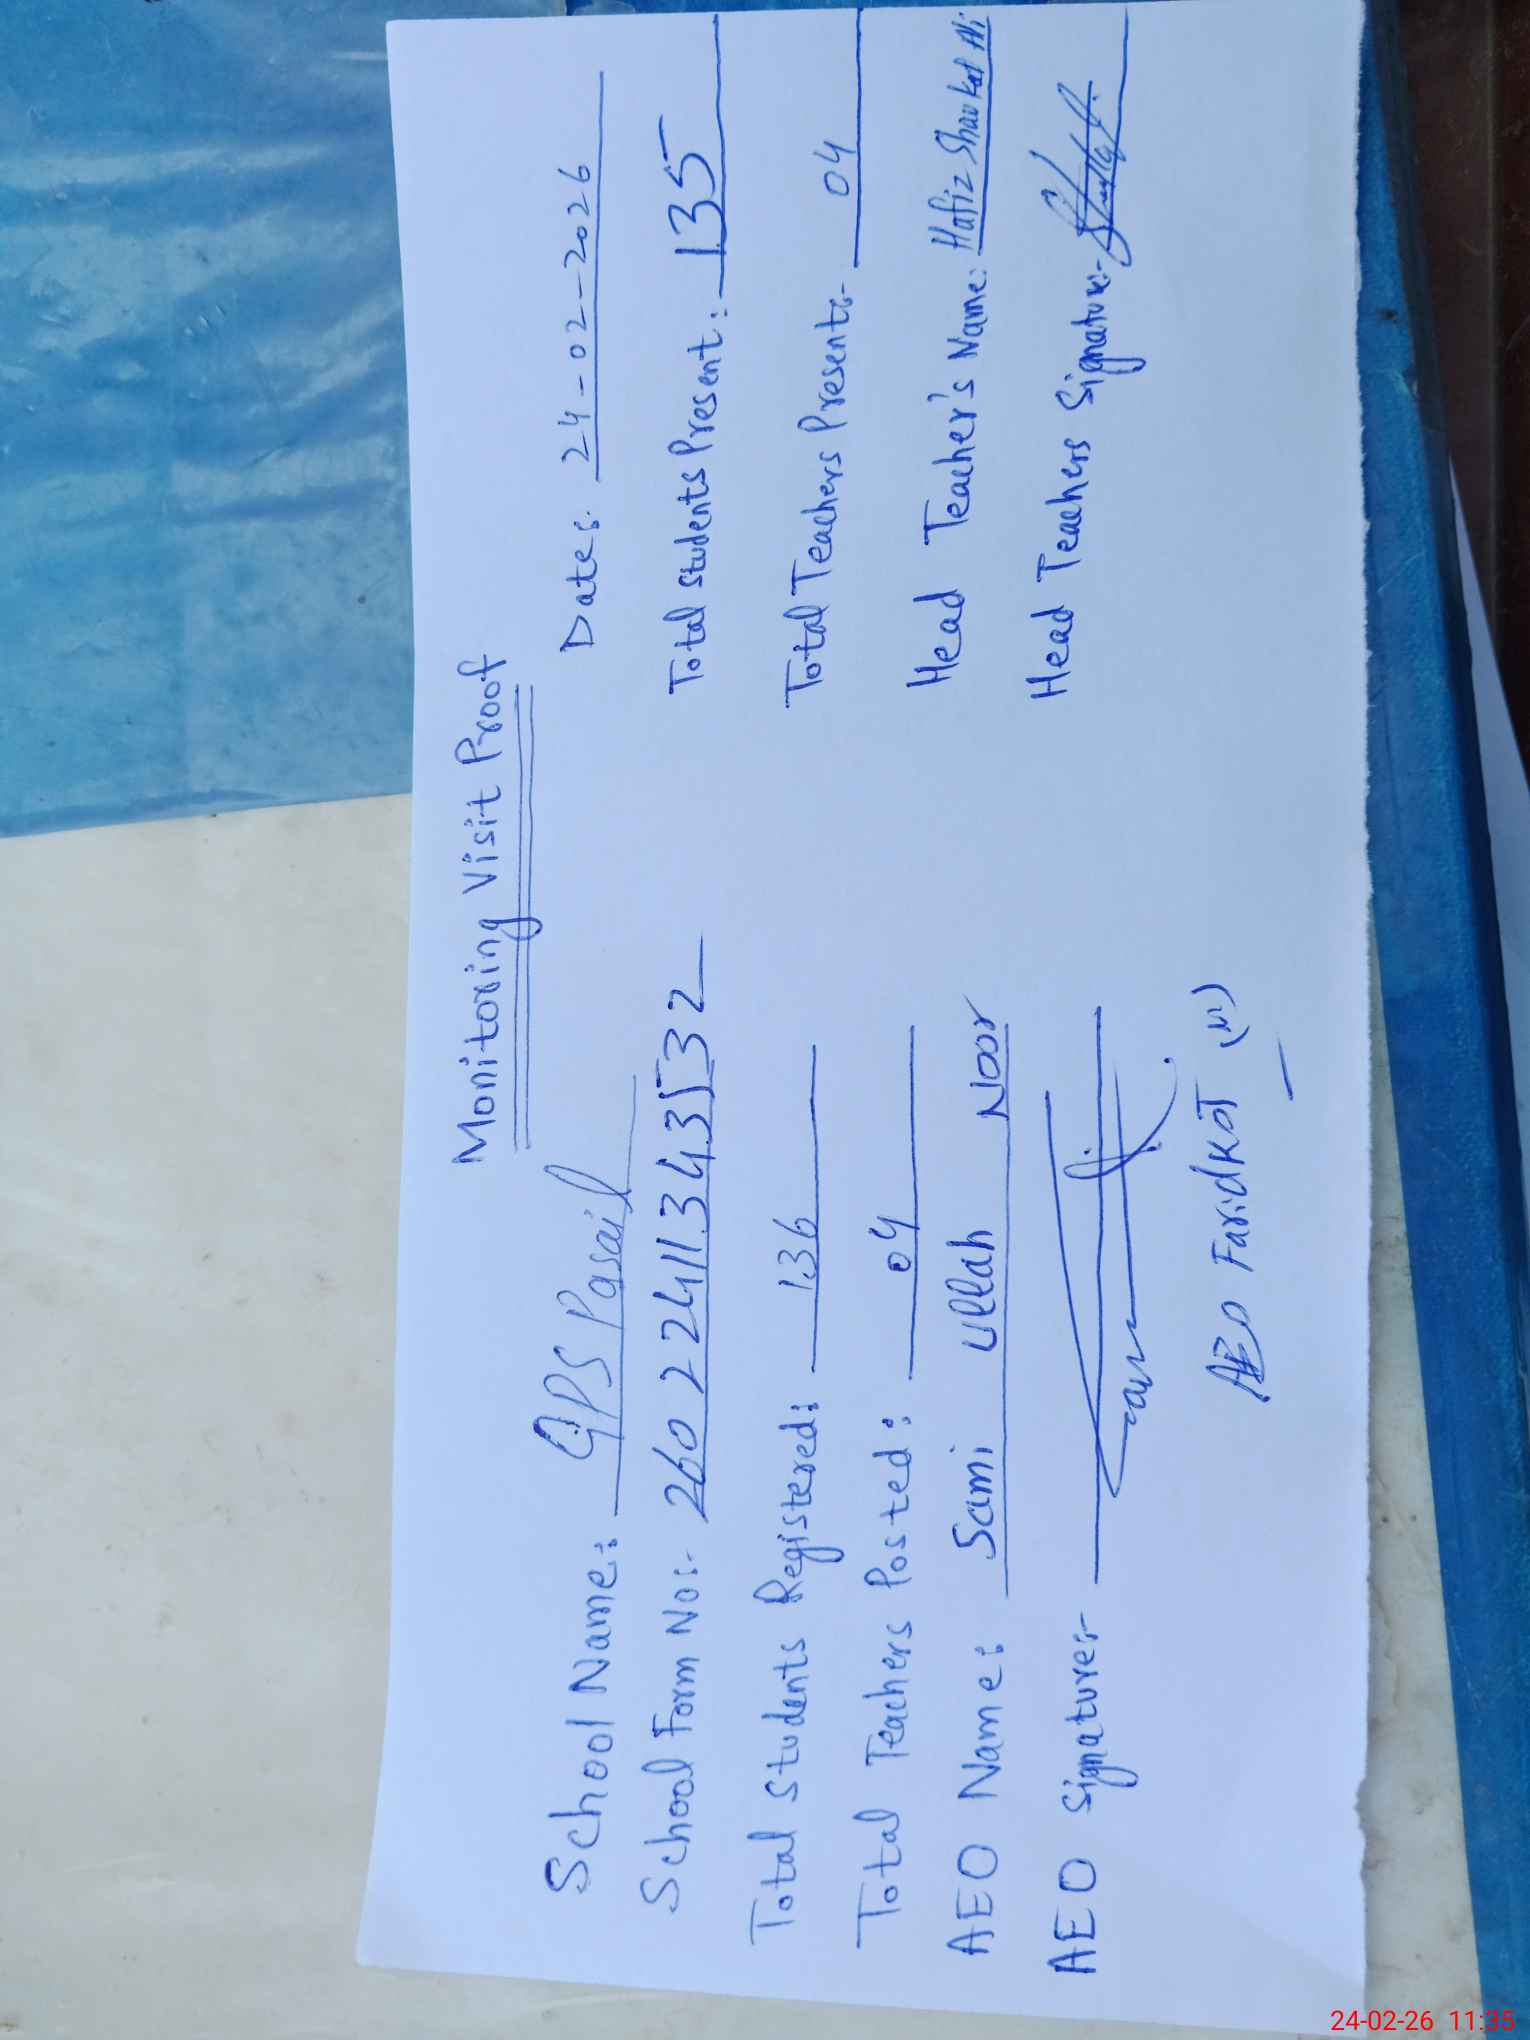 Monitoring Visit Proof
School Name: GPS Pasail Date: 24-02-2026
School Form No: 26022411343532 Total Students Present: 135
Total Students Registered: 136 Total Teachers Present: 04
Total Teachers Posted: 04 Head Teacher's Name: Hafiz Shaukat Ali
AEO Name: Sami Ullah Noor Head Teachers Signature:-
AEO Signature:-
AEO Faridkot (M)
24-02-26 11:35